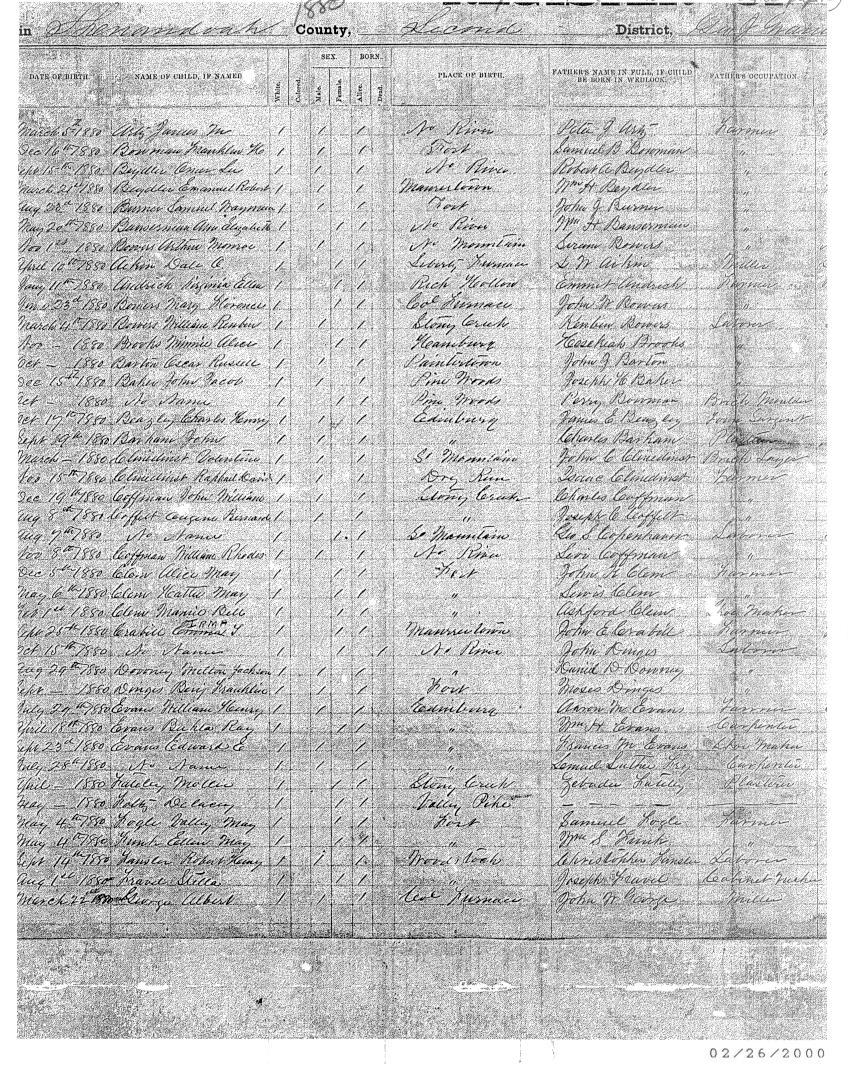 1880
in Shenandoah County, Second District,
DATE OF BIRTH. NAME OF CHILD, IF NAMED White. Colored. SEX. Male. Female. BORN. Alive. Dead. PLACE OF BIRTH. FATHER'S NAME IN FULL, IF CHILD BE BORN IN WEDLOCK. FATHER'S OCCUPATION.
March 5th 1880 Artz James M / / / No River Peter J Artz Farmer
Dec 16th 1880 Bowman Franklin H / / / Fort Samuel B Bowman "
Sept 15th 1880 Beydler / / / No River Robert A Beydler "
March 21st 1880 Beydler Emanuel Robert / / / Maurertown Wm H Beydler "
Aug 22d 1880 Burner Samuel / / / Fort John J Burner "
May 20th 1880 Banserman Ann Elizabeth / / / No River Wm H Banserman "
Nov 1st 1880 Bowers Arthur Monroe / / / No Mountain Bowers "
April 10th 1880 Aikin Dale C / / / Liberty Furnace L W Aikin Miller
Jany 11th 1880 Andrick Virginia Ellen / / / Rich Hollow Emmit Andrick Farmer
23d 1880 Bowers Mary Florence / / / Col Furnace John W Bowers "
March 4th 1880 Bowers William Reuben / / / Stony Creek Reuben Bowers Laborer
Nov — 1880 Brooks Minnie Alice / / / Hamburg Hesekiah Brooks "
Oct — 1880 Barton Oscar Russell / / / Paintertown John J Barton "
Dec 15th 1880 Baker John Jacob / / / Pine Woods Joseph H Baker "
Oct — 1880 No Name / / / Pine Woods Perry Bowman Brick Moulder
Oct 17th 1880 Beazley Charles Henry / / / Edinburg James E Beazley Town Sargent
Sept 29th 1880 Barham John / / / " Charles Barham
March — 1880 Clinedinst Valentine / / / So Mountain John C Clinedinst Brick Layer
Nov 15th 1880 Clinedinst Raphael David / / / Dry Run Isaac Clinedinst Farmer
Dec 19th 1880 Coffman John William / / / Stony Creek Charles Coffman "
Aug 8th 1880 Coffelt Eugene Bernard / / / " Joseph C Coffelt "
Aug 7th 1880 No Name / / / So Mountain Geo S Copenhaver Laborer
Nov 8th 1880 Coffman William Rhodes / / / No River Levi Coffman "
Dec 5th 1880 Clem Alice May / / / Fort John H Clem Farmer
May 6th 1880 Clem Hattie May / / / " Lewis Clem "
Feb 1st 1880 Clem Mamie Bell / / / " Ashford Clem Shoe Maker
Sept 25th 1880 Crabill IRMA / / / Maurertown John E Crabill Farmer
Oct 15th 1880 No Name / / / No River John Dinges Laborer
Aug 29th 1880 Dovoney Milton Jackson / / / " David D Downey "
Sept — 1880 Dinges Benj Franklin / / / Fort Moses Dinges "
July 29th 1880 Evans William Henry / / / Edinburg Aaron M Evans Farmer
April 18th 1880 Evans Ray / / / " Wm H Evans Carpenter
Sept 23d 1880 Evans Edward E / / / " Francis M Evans Shoe Maker
July 28th 1880 No Name / / / " Lemuel Luther Fry Carpenter
April — 1880 Fateley Mollie / / / Stony Creek Fateley Plasterer
May — 1880 Foltz Delacey / / / Valley Pike — — —
May 4th 1880 Fogle Valley May / / / Fort Samuel Fogle Farmer
May 4th 1880 Funk Ellen May / / / " Wm S Funk "
Sept 14th 1880 Fansler Robert Henry / / / Woodstock Christopher Fansler Laborer
Aug 1st 1880 Fravel Stella / / / " Joseph Fravel Cabinet Maker
March 22d George Albert / / / Col Furnace John W George Miller
02/26/2000